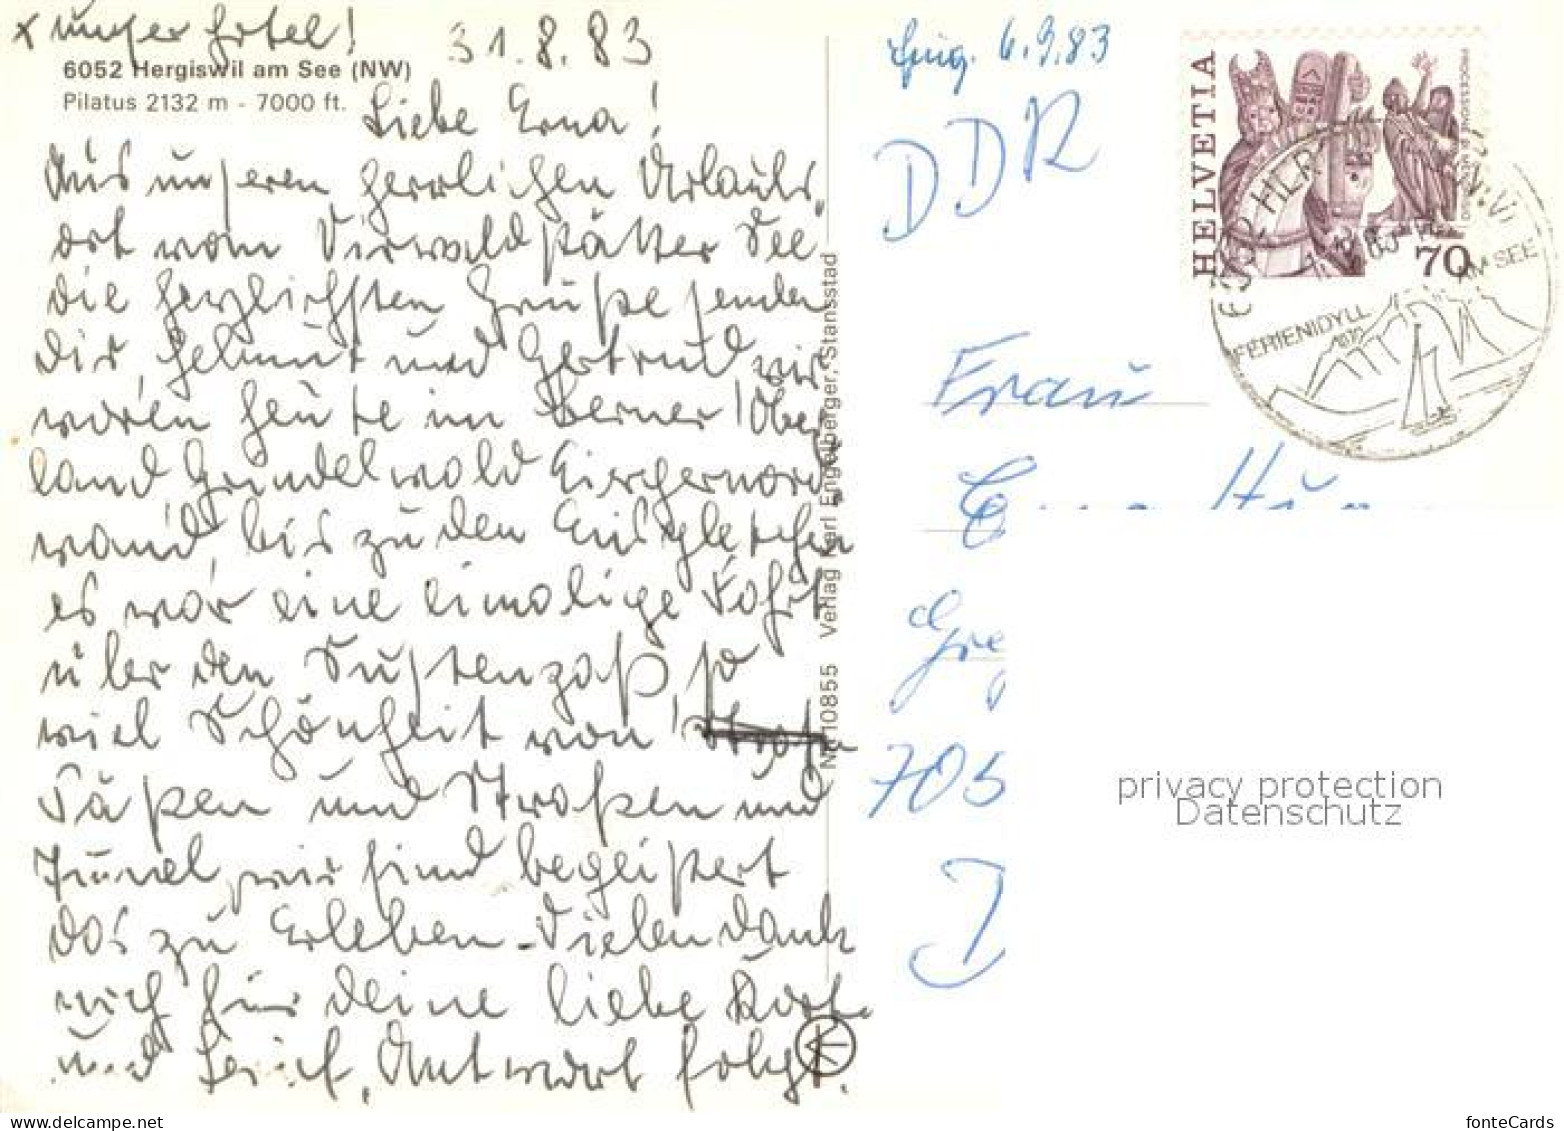 x unser Hotel! 31.8.83
6052 Hergiswil am See (NW)
Pilatus 2132 m - 7000 ft.
Liebe Erna!
Aus unseren herrlichen Urlaubs-
ort vom Virwaldstätter See
die herzlichsten Grüße senden
Dir, Helmut und Gertrud wir
waren heute im Berner Ober
land Grindelwald Eiergernord
wand, bis zu den Eisgletschern
es war eine eimalige Fahrt
über den Sustenpaß, so
viel Schönheit von
Päßen und Straßen und
Tunel, wir sind begeistert
das zu Erleben. Vielen Dank
auch für deine liebe Karte
und Antwort folgt.
Nr. 10855 Verlag Karl Engelberger, Stansstad
Eing. 6.9.83
DDR
HELVETIA
70
FERIENIDYLL
AM SEE
Frau
705
privacy protection
Datenschutz
fonteCards